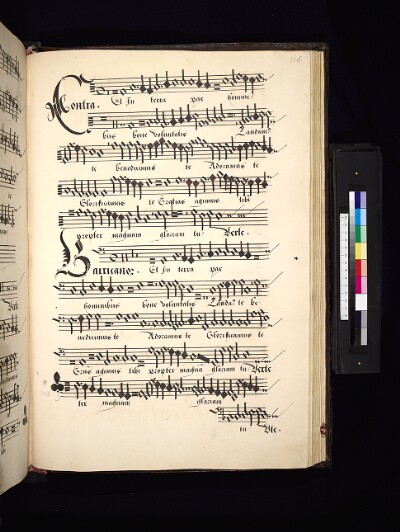 Contra. Et In terra pax homini-
bus bone voluntatis Laudam⁹
te benedicimus te Adoramus te
Glorificamus te Gratias agimus tibi
propter magnam gloriam tu Verte.
Barricanor. Et In terra pax
hominibus bone voluntatis te be
nedicimus te Adoramus te Glorificamus te
Gras agimus tibi propter magna gloriam tu Verte
ter magnam gloriam
tu Vte.